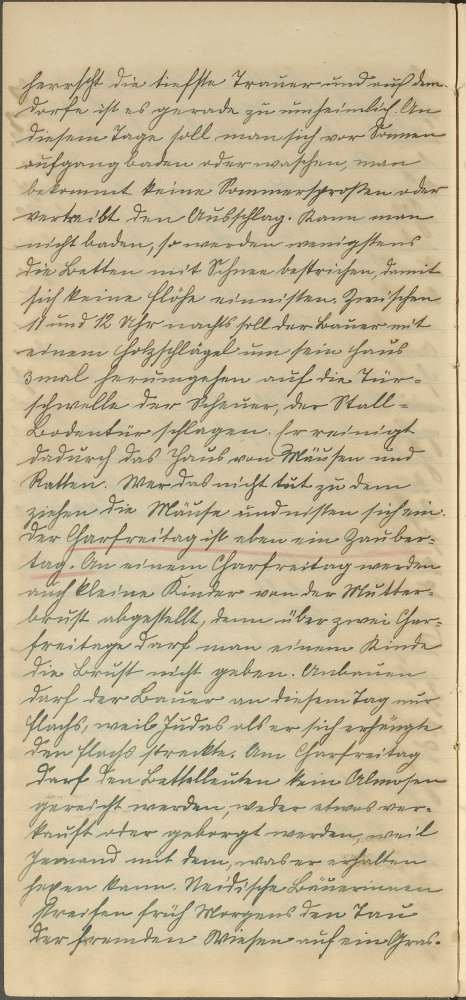 herrscht die tiefste Trauer und auf dem
Dorfe ist es gerade zu unheimlich. An
diesem Tage soll man sich vor Sonnen
aufgang baden oder waschen, man
bekommt keine Sommersproßen oder
vertreibt den Ausschlag. Kann man
nicht baden, so werden wenigstens
die Betten mit Schnee bestrichen, damit
sich keine Flöhe einnisten. Zwischen
11 und 12 Uhr nachts soll der Bauer mit
einem Holzschlägel um sein Haus
3 mal herumgehen auf die Tür-
schwelle der Scheuer, der Stall-
Bodentür schlagen. Er reinigt
dadurch das Haus von Mäusen und
Ratten. Wer das nicht tut zu dem
ziehen die Mäuse und nisten sich ein.
Der Charfreitag ist eben ein Zauber-
tag. An einem Charfreitag werden
auch kleine Kinder von der Mutter-
brust abgestellt, denn über zwei Char-
freitage darf man einem Kinde
die Brust nicht geben. Anbauen
darf der Bauer an diesem Tag nur
Flachs, weil Judas als er sich erhängte
den Flachs streckte. Am Charfreitag
darf den Bettelleuten kein Almosen
gereicht werden, weder etwas ver-
kauft oder geborgt werden, weil
Jemand mit dem, was er erhalten
hexen kann. Neidische Bäuerinnen
streifen früh Morgens den Tau
der fremden Wiesen auf ein Gras-